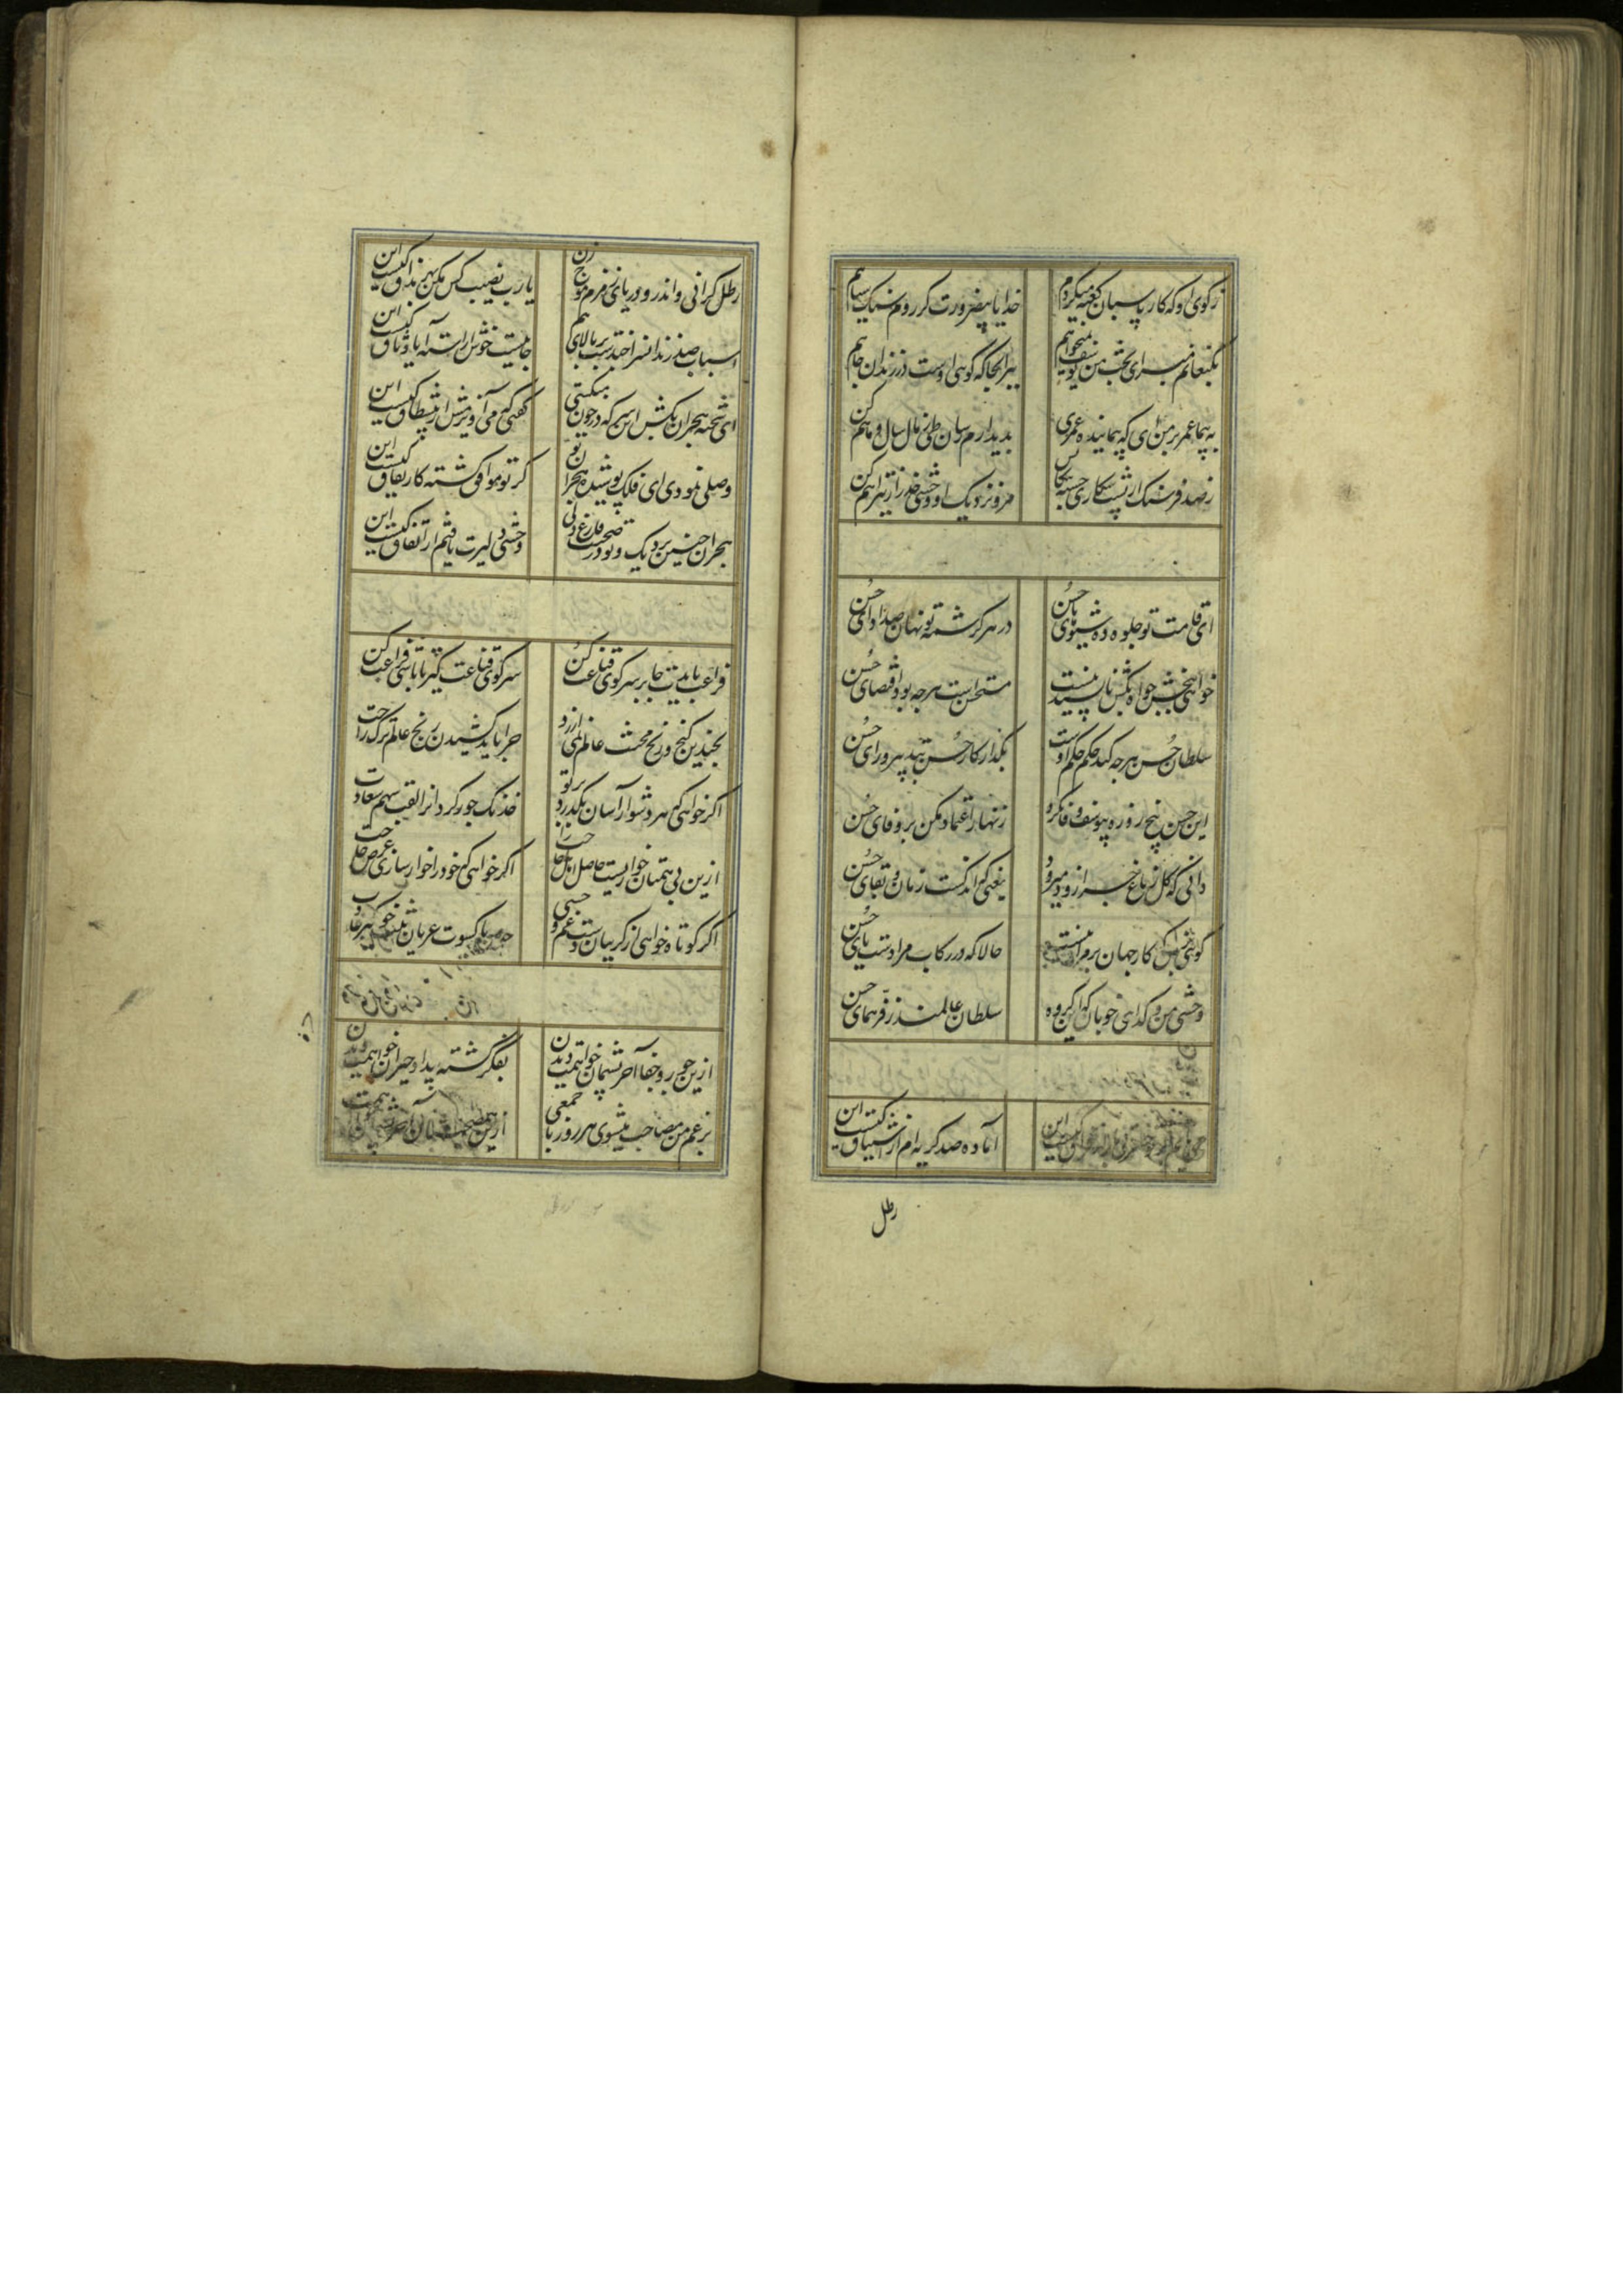 ز کوی او که کار پاسبان کعبه میکردم
خدایا بیضرورت کر روم سنک سیاهم کن
بکنعانم مبر ای بخت من یوسف نمیخواهم
ببر انجا که کوی اوست در زندان چاهم کن
به پیما عمر بر من ای که پیمانیده عمری
بدیدارم رسان طی زمان سال و ماهم کن
ز صد فرسنک از پشت
مرو نزدیک او وحشی حذر از تیر اهم کن
ای قامت تو جلوه ده شیوه های حسن
در هر کرشمه تو نهان صد ادای حسن
خواهی ببخش خواه بکش ناپسند نیست
مستحسن است هر چه بود اقتضای حسن
سلطان حسن هر چه کند حکم حکم اوست
بکذار کار حسن بتدبیر و رای حسن
این حسن پنج روزه بیوسف وفا نکرد
زنهار اعتماد مکن بر وفای حسن
دانی که کل ز باغ چرا زود میرود
یعنی که اندکست زمان بقای حسن
کوی ز پس کار جهان بر مراد تست
حالا که در رکاب مرادست پای حسن
وحشی من و کدائی خوبان که این کروه
سلطان عالمند ز فر همای حسن
کیست این
آماده صد کریه ام از اشتیاق کیست این
رطل
رطل کرانی واندرو دریای زهرم موج زن
یا رب نصیب کس مکن بهر مذاق کیست این
اسباب صد زندانسرا چندست بر بالای هم
جائیست خوش اراسته آیا وثاق کیست این
ای شحنه هجران بکش این سر که در خون میکشی
کفتی که می آویزش از پیش طاق کیست این
وصلی نمودی ای فلک پوشیده هجران تو
کر تو موافق کشته کار نفاق کیست این
هجران چنین نزدیک و تو در صحبت فارغ دلی
وحشی دلیرت یافتم از اتفاق کیست این
فراغت بایدت جا بر سر کوی قناعت کن
سر کوی قناعت کیر تا باشی فراغت کن
بچندین کنج و رنج محنت عالم نمی ارزد
چرا باید کشیدن رنج عالم ترک راحت
اکر خواهی که هر دشوار آسان بکذرد بر تو
خدنک جور کردانرا لقب سهم سعادت
ازین بی همتان خواریست حاصل اهل حاجت را
اکر خواهی که خود را خوار سازی عرض حاجت
اکر کوتاه خواهی از کریبان دست غم وحشی
چو ما با کسوت عریان تنی خو کیر و عادت
ازین جور و جفا آخر پشیمان خواهمت دیدن
بفکر کشته بیداد حیران خواهمت دیدن
بزعم من مصاحب میشوی هر روز با جمعی
ازین صحبت